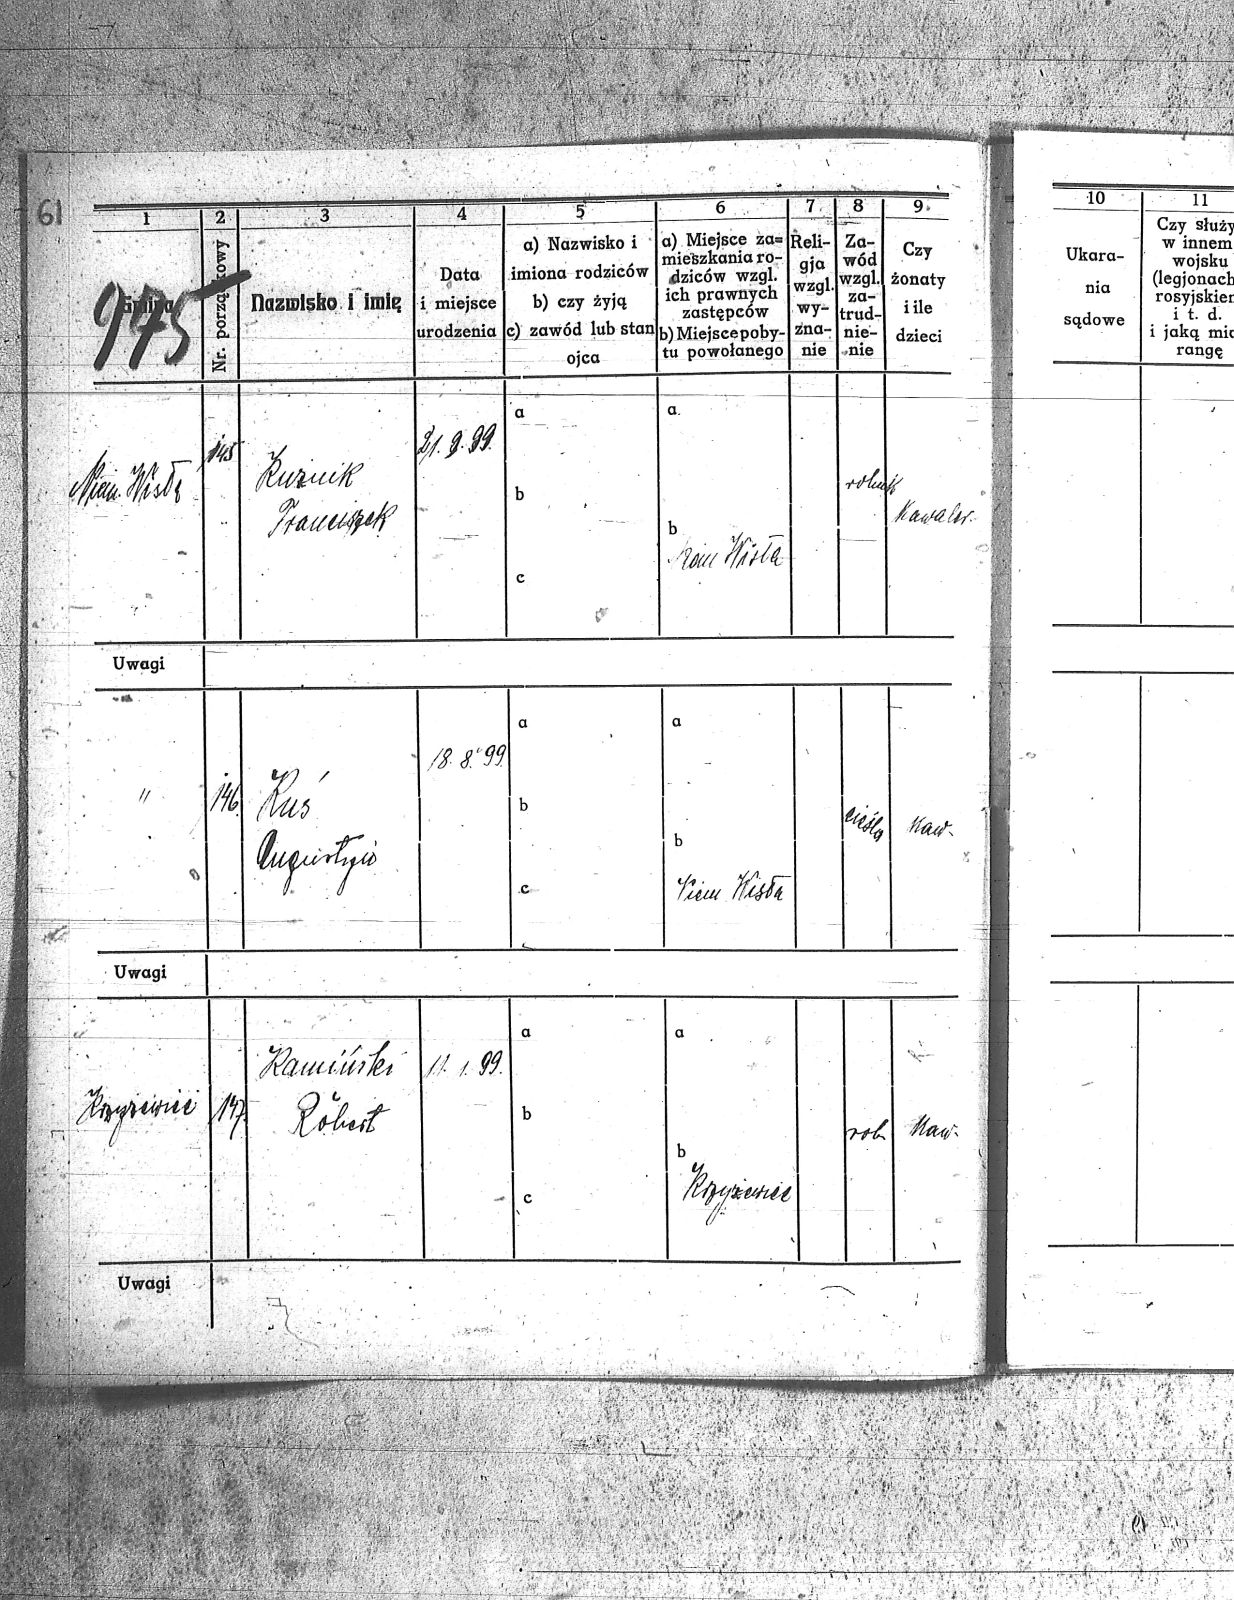 61
1 2 3 4 5 6 7 8 9.
Gmina
975
Nr. porządkowy
Nazwisko i imię
Data
i miejsce
urodzenia
a) Nazwisko i
imiona rodziców
b) czy żyją
c) zawód lub stan
ojca
a) Miejsce za=
mieszkania ro-
dziców wzgl.
ich prawnych
zastępców
b) Miejsce poby-
tu powołanego
Reli-
gja
wzgl.
wy-
zna-
nie
Za-
wód
wzgl.
za-
trud-
nie-
nie
Czy
żonaty
i ile
dzieci
Niem. Wisła
145
Kuźnik
Franciszek
21. 9. 99.
a
b
c
a.
b
Niem Wisła
robotnik
Kawaler.
Uwagi
"
146.
Kuś
Augustyn
18. 8. 99.
a
b
c
a
b
Niem Wisła
cieśla
Kaw.
Uwagi
Krzyżowice
147.
Kamiński
Robert
11. 1. 99.
a
b
c
a
b
Krzyżowice
rob.
Kaw.
Uwagi
10 11
Ukara-
nia
sądowe
Czy służy
w innem
wojsku
(legjonach
rosyjskiem
i t. d.
i jaką miał
rangę